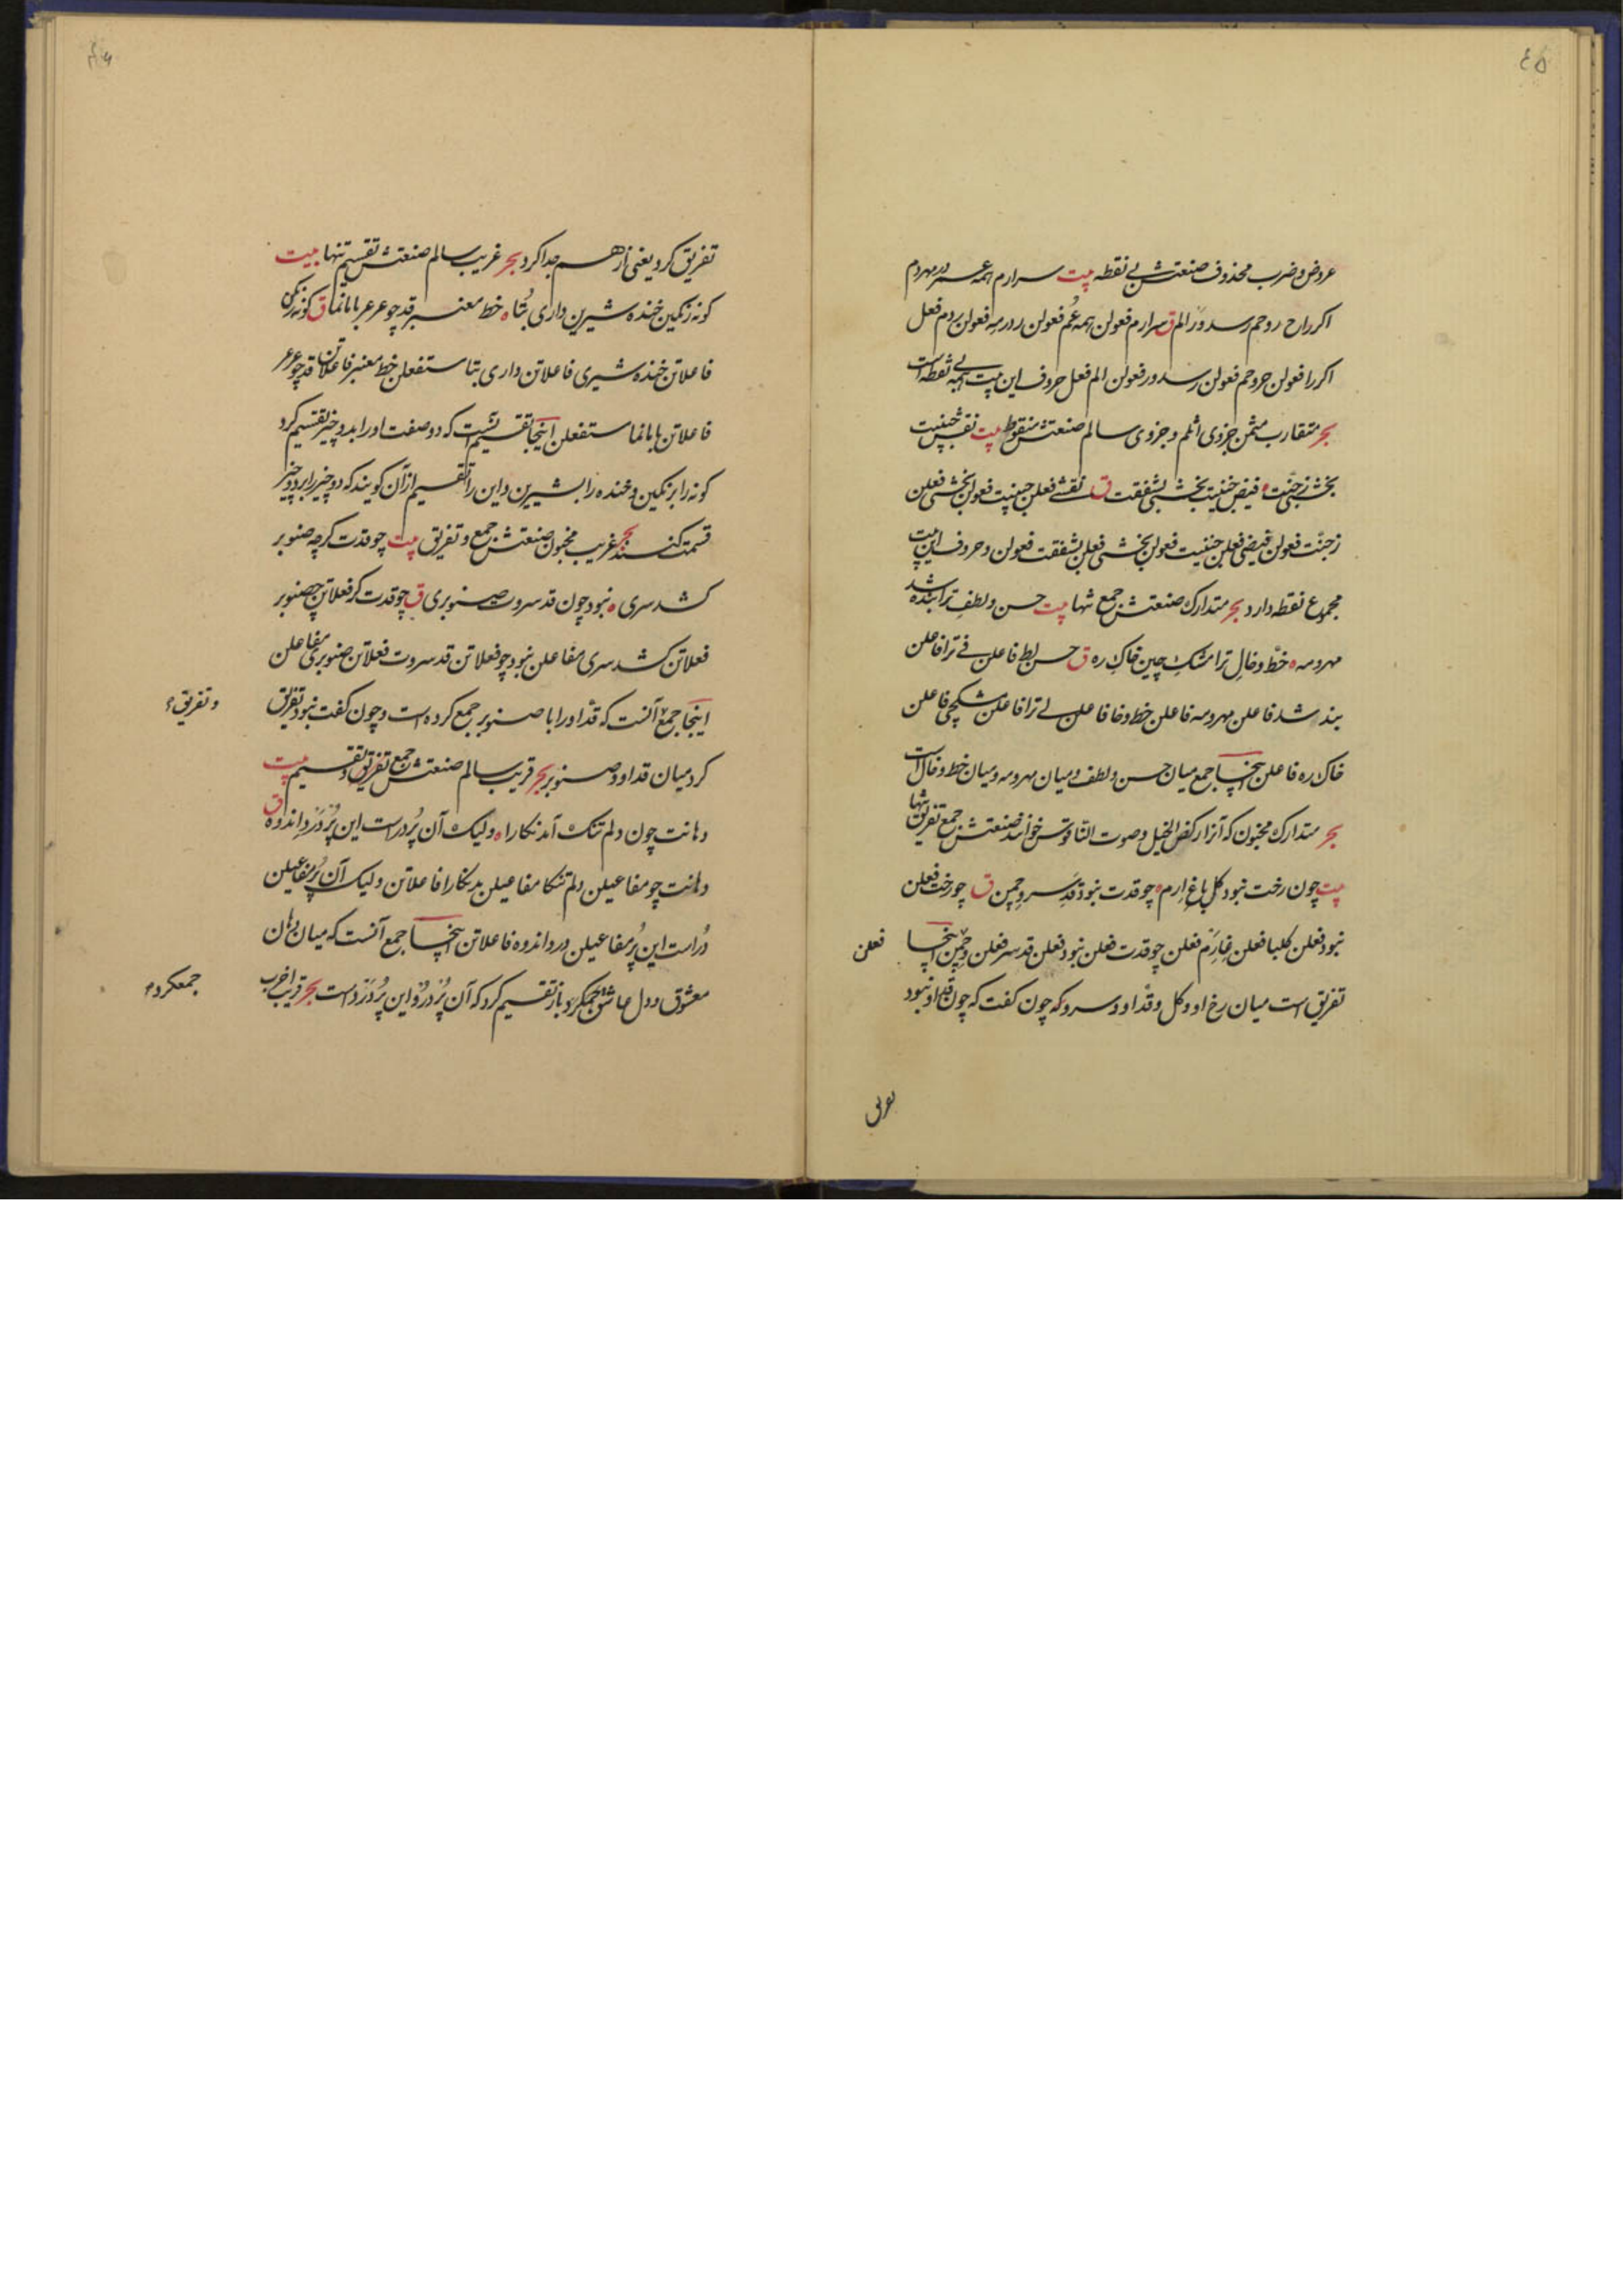 ٤۵
عروض و ضرب محذوف صنعتش بی نقطه بیت سرارم همه عمر در مهر دم
اکر راح روحم رسد ور الم ق سرارم فعولن همه عم فعولن ردرمه فعولن ردم فعل
اکر را فعولن حروحم فعولن رسد ور فعولن الم فعل حروف این بیت همه بی نقطه است
بحر متقارب مثمن جزوی اثلم و جزوی سالم صنعتش منقوط بیت
بخشی فیض ق فعلن فعولن بخشی فعلن
فعولن فیضی فعلن فعولن بخشی فعلن بشفقت فعولن و حروف این بیت
مجموع نقطه دارد بحر متدارک صنعتش جمع تنها بیت حسن و لطف ترا بنده شد
مهر و مه ه خط و خال ترا مشک چین خاک ره ق حسن لط فاعلن فی ترا فاعلن
بند شد فاعلن مهر و مه فاعلن خط و خا فاعلن ل ترا فاعلن مشکچی فاعلن
خاک ره فاعلن اینجا جمع میان حسن و لطف و میان مهر و مه و میان خط و خال است
بحر متدارک مخبون که آنرا رکض الخیل و صوت الناقوس خوانند صنعتش جمع تفریق تنها
بیت چون رخت نبود کل باغ ارم ه چو قدت نبود قد سرو چمن ق چو رخت فعلن
نبود فعلن کلبا فعلن غارم فعلن چو قدت فعلن نبود فعلن قد سر فعلن و چمن اینجا فعلن
تفریق است میان رخ او و کل و قد او و سرو که چون کفت که چون قد او نبود
تفریق
٤٦
تفریق کرد یعنی از هم جدا کرد بحر غریب سالم صنعتش تقسیم تنها بیت
کونه رنکین خنده شیرین داری بتا ه خط معنبر قد چو عرعر با ما نما ق کونه رنکی
فاعلاتن خنده شیری فاعلاتن داری بتا مستفعلن خط معنبر فاعلاتن قد چو عرعر
فاعلاتن با ما نما مستفعلن اینجا تقسیم که دو صفت او را بدو چیز تقسیم کرد
کونه را برنکین و خنده را بشیرین و این را تقسیم از آن کویند که دو چیز را بر دو چیز
قسمت کنند بحر غریب مخبون صنعتش جمع و تفریق بیت چو قدت کرچه صنوبر
کشد سری ه نبود چون قد سروت صنوبری ق چو قدت کر فعلاتن چه صنوبر
فعلاتن کشد سری مفاعلن نبود چو فعلاتن قد سروت فعلاتن صنوبری مفاعلن
اینجا جمع آنست که قد او را با صنوبر جمع کرده است و چون کفت نبود تفریق
و تفریق
کرد میان قد او و صنوبر بحر قریب سالم صنعتش جمع و تفریق و تقسیم بیت
دهانت چون دلم تنک آمد نکارا ه ولیک آن پر در است این پر ز درد و اندوه ق
دهانت چو مفاعیلن دلم تنکا مفاعیلن مد نکارا فاعلاتن ولیک آن پر مفاعیلن
در است این پر مفاعیلن درد اندوه فاعلاتن اینجا جمع آنست که میان دهان
معشوق و دل عاشق جمعکرد باز تقسیم کرد که آن پر ز در و این پر ز درد است بحر قریب اخرب
جمعکرده